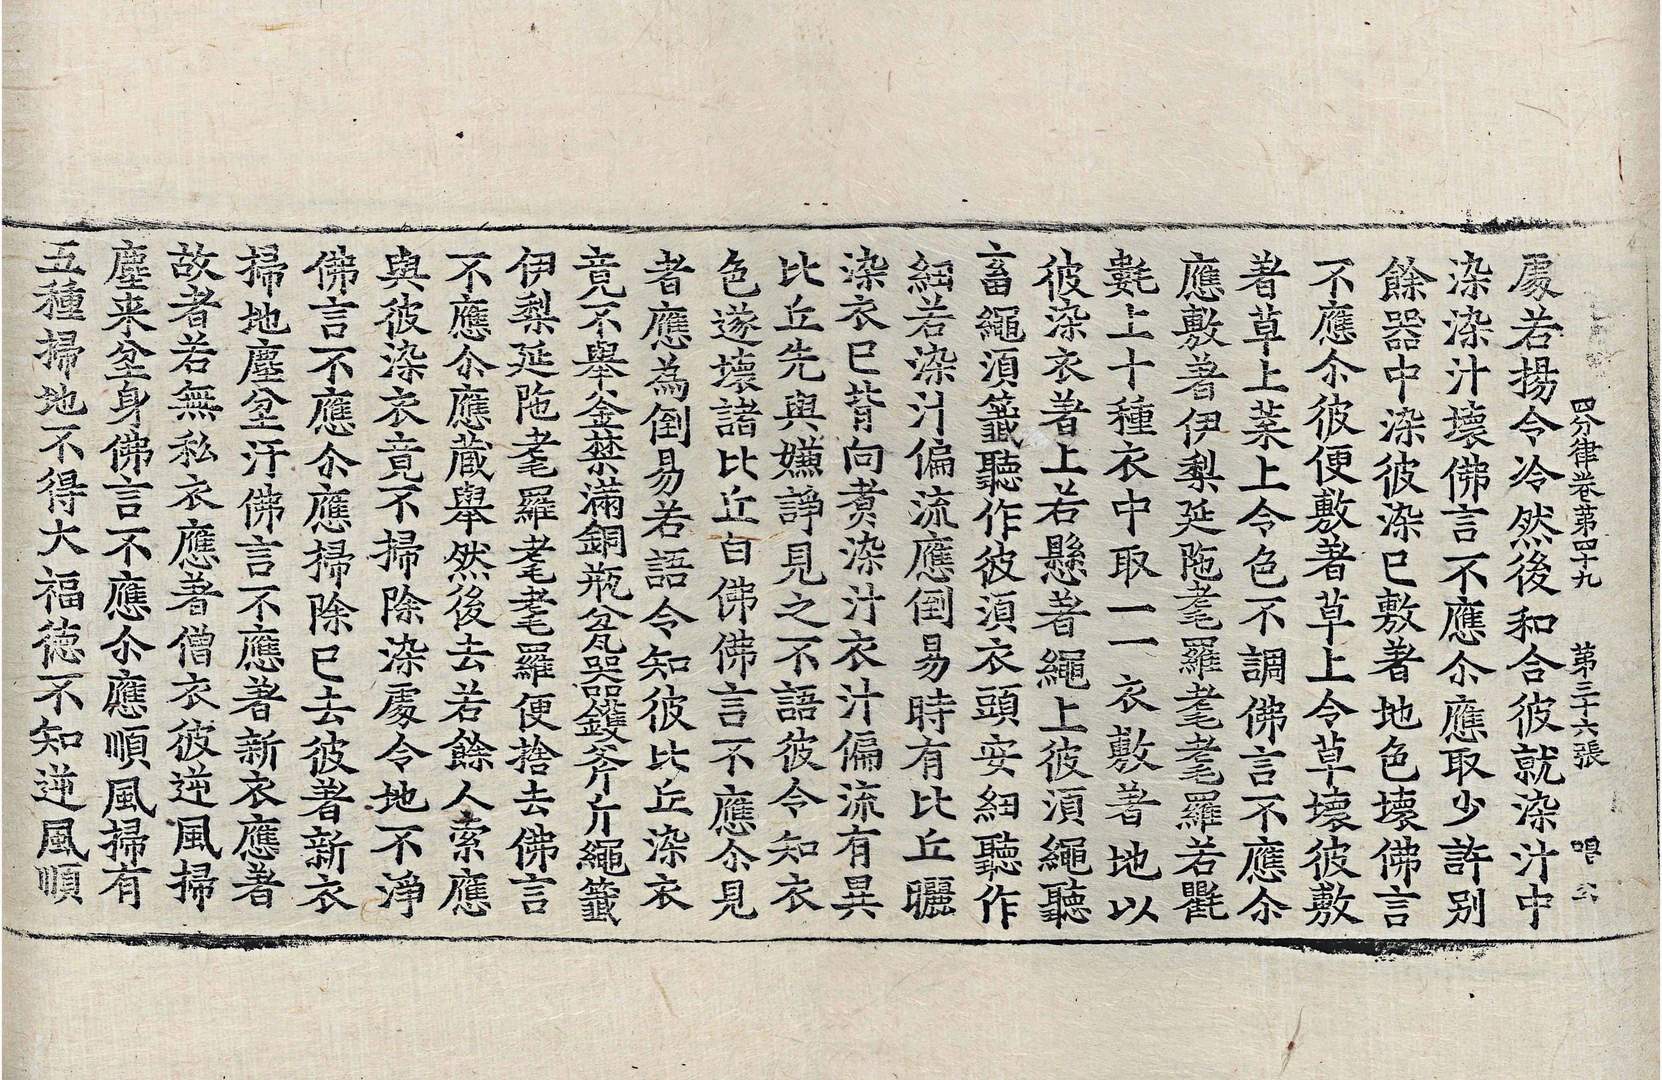 四分律卷第四十九　第三十六張　唱
處若揚令冷然後和合彼就染汁中
染染汁壞佛言不應尒應取少許別
餘器中染彼染已敷著地色壞佛言
不應尒彼便敷著草上令草壞彼敷
著草上葉上令色不調佛言不應尒
應敷著伊梨延陁耄羅耄耄羅若氍
氀上十種衣中取一一衣敷著地以
彼染衣著上若懸著繩上彼湏繩聽
畜繩湏籤聽作彼湏衣頭安紐聽作
紐若染汁偏流應倒易時有比丘曬
染衣已背向煑染汁衣汁偏流有異
比丘先與嫌諍見之不語彼令知衣
色遂壞諸比丘白佛佛言不應尒見
者應為倒易若語令知彼比丘染衣
竟不舉釜𣛛滿銅瓶盆瓦器钁斧斤繩籤
伊梨延陁耄羅耄耄羅便捨去佛言
不應尒應藏舉然後去若餘人索應
與彼染衣竟不掃除染處令地不淨
佛言不應尒應掃除已去彼著新衣
掃地塵坌汙佛言不應著新衣應著
故者若無私衣應著僧衣彼逆風掃
塵来坌身佛言不應尒應順風掃有
五種掃地不得大福德不知逆風順